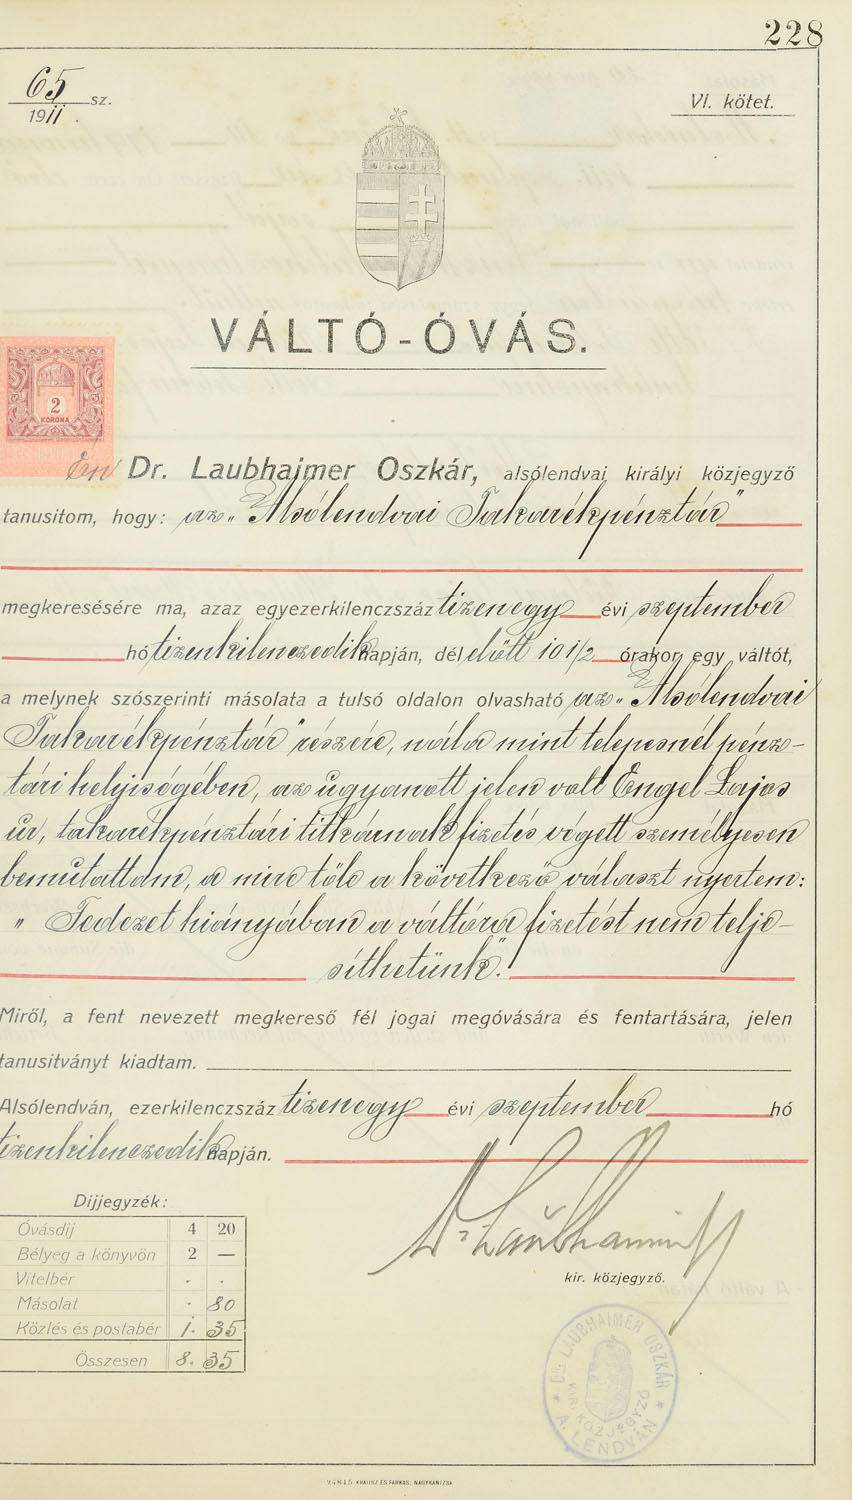 228
65 sz.
1911.
VI. kötet.
VÁLTÓ-ÓVÁS.
2
KORONA
Én Dr. Laubhaimer Oszkár, alsólendvai királyi közjegyző
tanusitom, hogy: az „Alsólendvai Takarékpénztár"
megkeresésére ma, azaz egyezerkilenczszáz tizenegy évi szeptember
hó tizenkilenczedik napján, dél előtt 10 1/2 órakor egy váltót,
a melynek szószerinti másolata a tulsó oldalon olvasható az „Alsólendvai
Takarékpénztár" részére, nála mint telepesnél pénz-
tári helyiségében, az ugyanott jelen volt Engel Lajos
úr, takarékpénztári titkárnak fizetés végett személyesen
bemutattam, a mire tőle a következő választ nyertem:
„Fedezet hiányában a váltóra fizetést nem telje-
síthetünk".
Miről, a fent nevezett megkereső fél jogai megóvására és fentartására, jelen
tanusitványt kiadtam.
Alsólendván, ezerkilenczszáz tizenegy évi szeptember hó
tizenkilenczedik napján.
Dijjegyzék:
Óvásdij 4 20
Bélyeg a könyvön 2 —
Vitelbér . .
Másolat . 80
Közlés és postabér 1. 35
Összesen 8. 35
kir. közjegyző.
DR. LAUBHAIMER OSZKÁR
KIR. KÖZJEGYZŐ
A. LENDVÁN
KRAUSZ ÉS FARKAS, NAGYKANIZSA